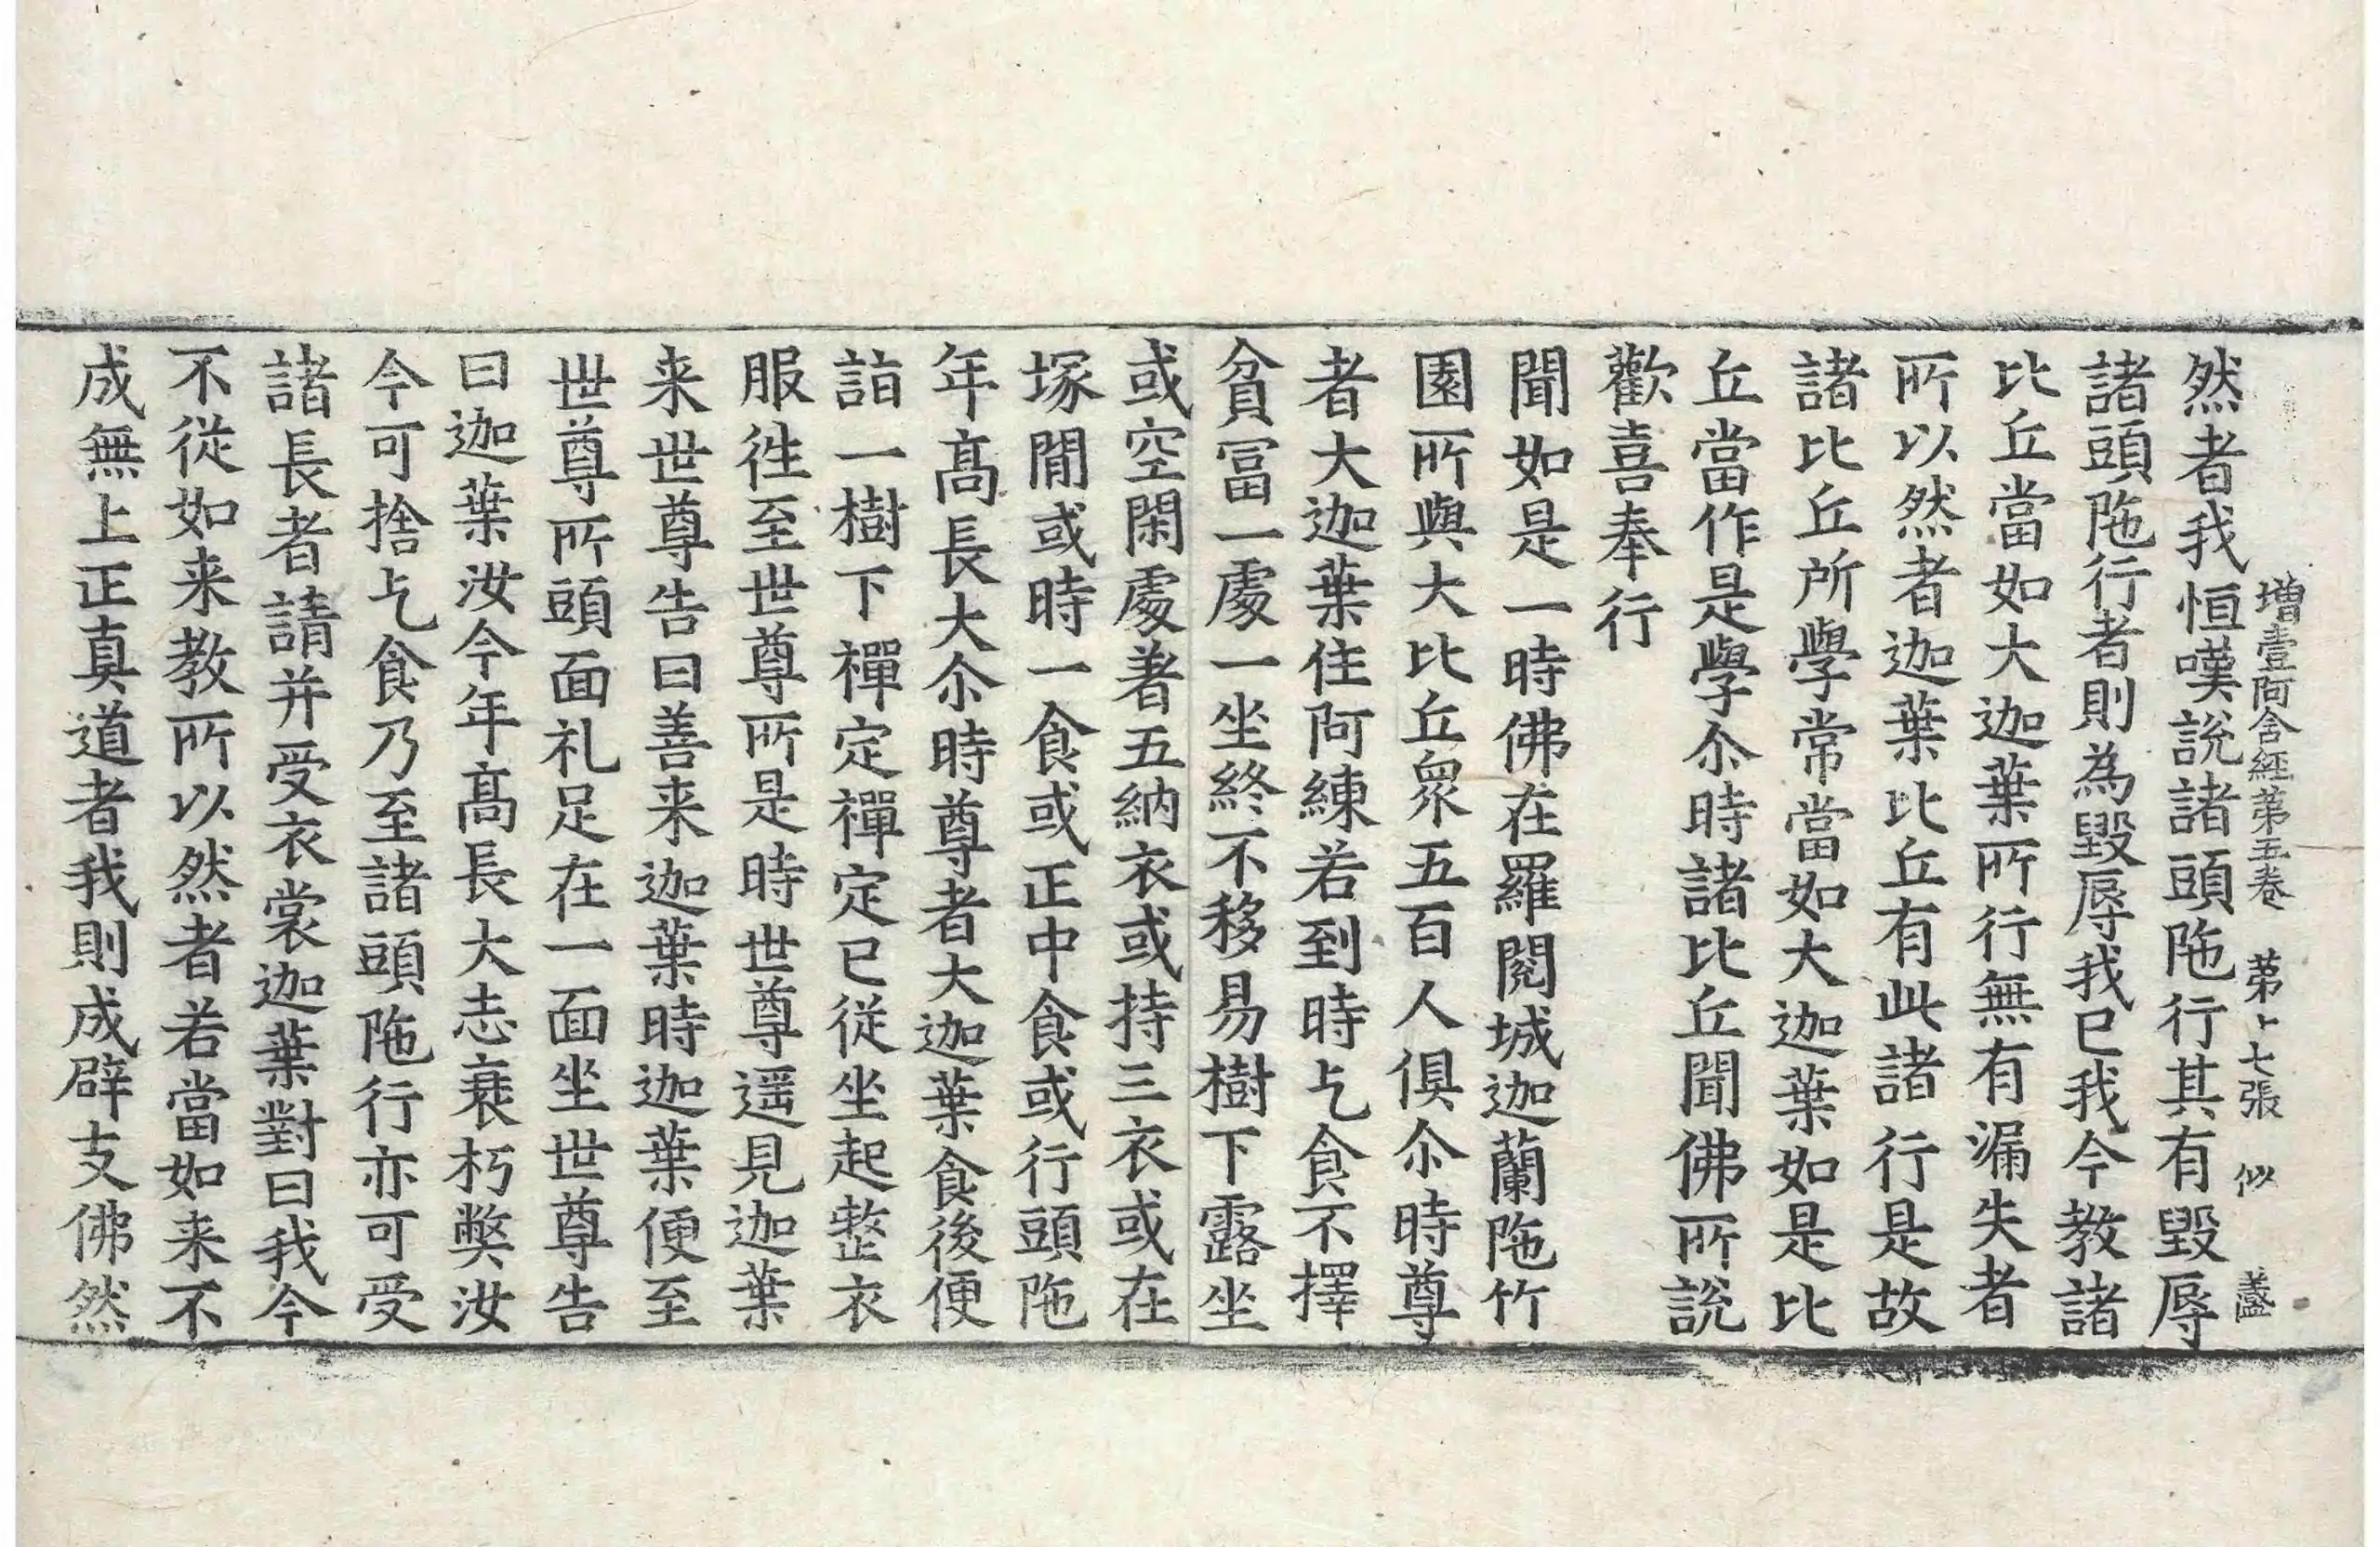 增壹阿含經第五卷 第十七張 似 盡
然者我恒嘆說諸頭陁行其有毀辱
諸頭陁行者則為毀辱我已我今教諸
比丘當如大迦葉所行無有漏失者
所以然者迦葉比丘有此諸行是故
諸比丘所學常當如大迦葉如是比
丘當作是學尒時諸比丘聞佛所說
歡喜奉行
聞如是一時佛在羅閱城迦蘭陁竹
園所與大比丘衆五百人俱尒時尊
者大迦葉住阿練若到時乞食不擇
貧冨一處一坐終不移易樹下露坐
或空閑處著五納衣或持三衣或在
塚閒或時一食或正中食或行頭陁
年髙長大尒時尊者大迦葉食後便
詣一樹下禪定禪定已從坐起整衣
服徃至世尊所是時世尊遥見迦葉
来世尊告曰善来迦葉時迦葉便至
世尊所頭面礼足在一面坐世尊告
曰迦葉汝今年髙長大志衰朽獘汝
今可捨乞食乃至諸頭陁行亦可受
諸長者請并受衣裳迦葉對曰我今
不從如来教所以然者若當如来不
成無上正真道者我則成辟支佛然